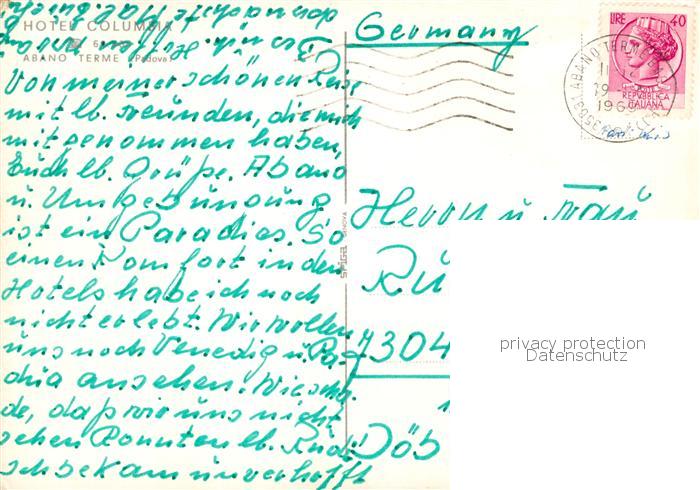 HOTEL COLUMBIA
ABANO TERME (Padova)
Von meiner schönen Reise
mit lb. Freunden, die mich
mitgenommen haben,
Euch lb. Grüße. Abano
u. Umgebung
ist ein Paradies. So
einen Komfort in den
Hotels habe ich noch
nicht erlebt. Wir wollen
uns noch Venedig u. Pa-
dua ansehen. Wie scha-
de, daß wir uns nicht
sehen konnten lb. Rudi
ich bekam unverhofft
SPIGA GENOVA
Germany
LIRE 40
REPUBBLICA
ITALIANA
ABANO TERME
35031
196
Herrn u. Frau
Rü
7304
Döb
privacy protection
Datenschutz